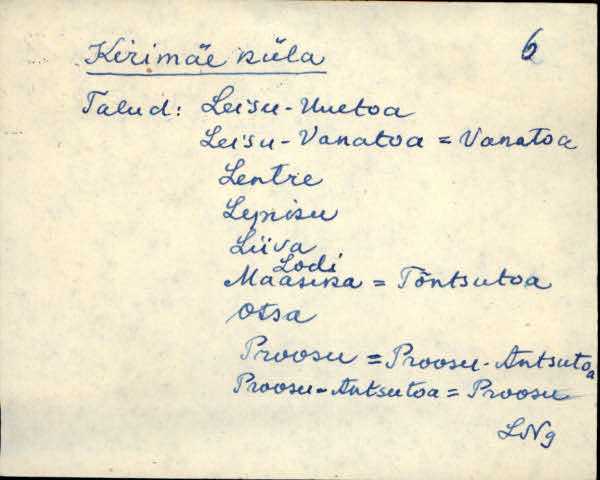 Kirimäe küla 6
Talud: Leisu-Uuetoa
Leisu-Vanatoa = Vanatoa
Lentre
Lepiku
Liiva
Lodi
Maasika = Tõntsutoa
Otsa
Proosu = Proosu-Antsutoa
Proosu-Antsutoa = Proosu
LNg